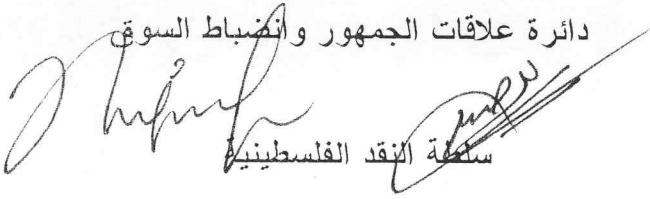 دائرة علاقات الجمهور وانضباط السوق
سلطة النقد الفلسطينية